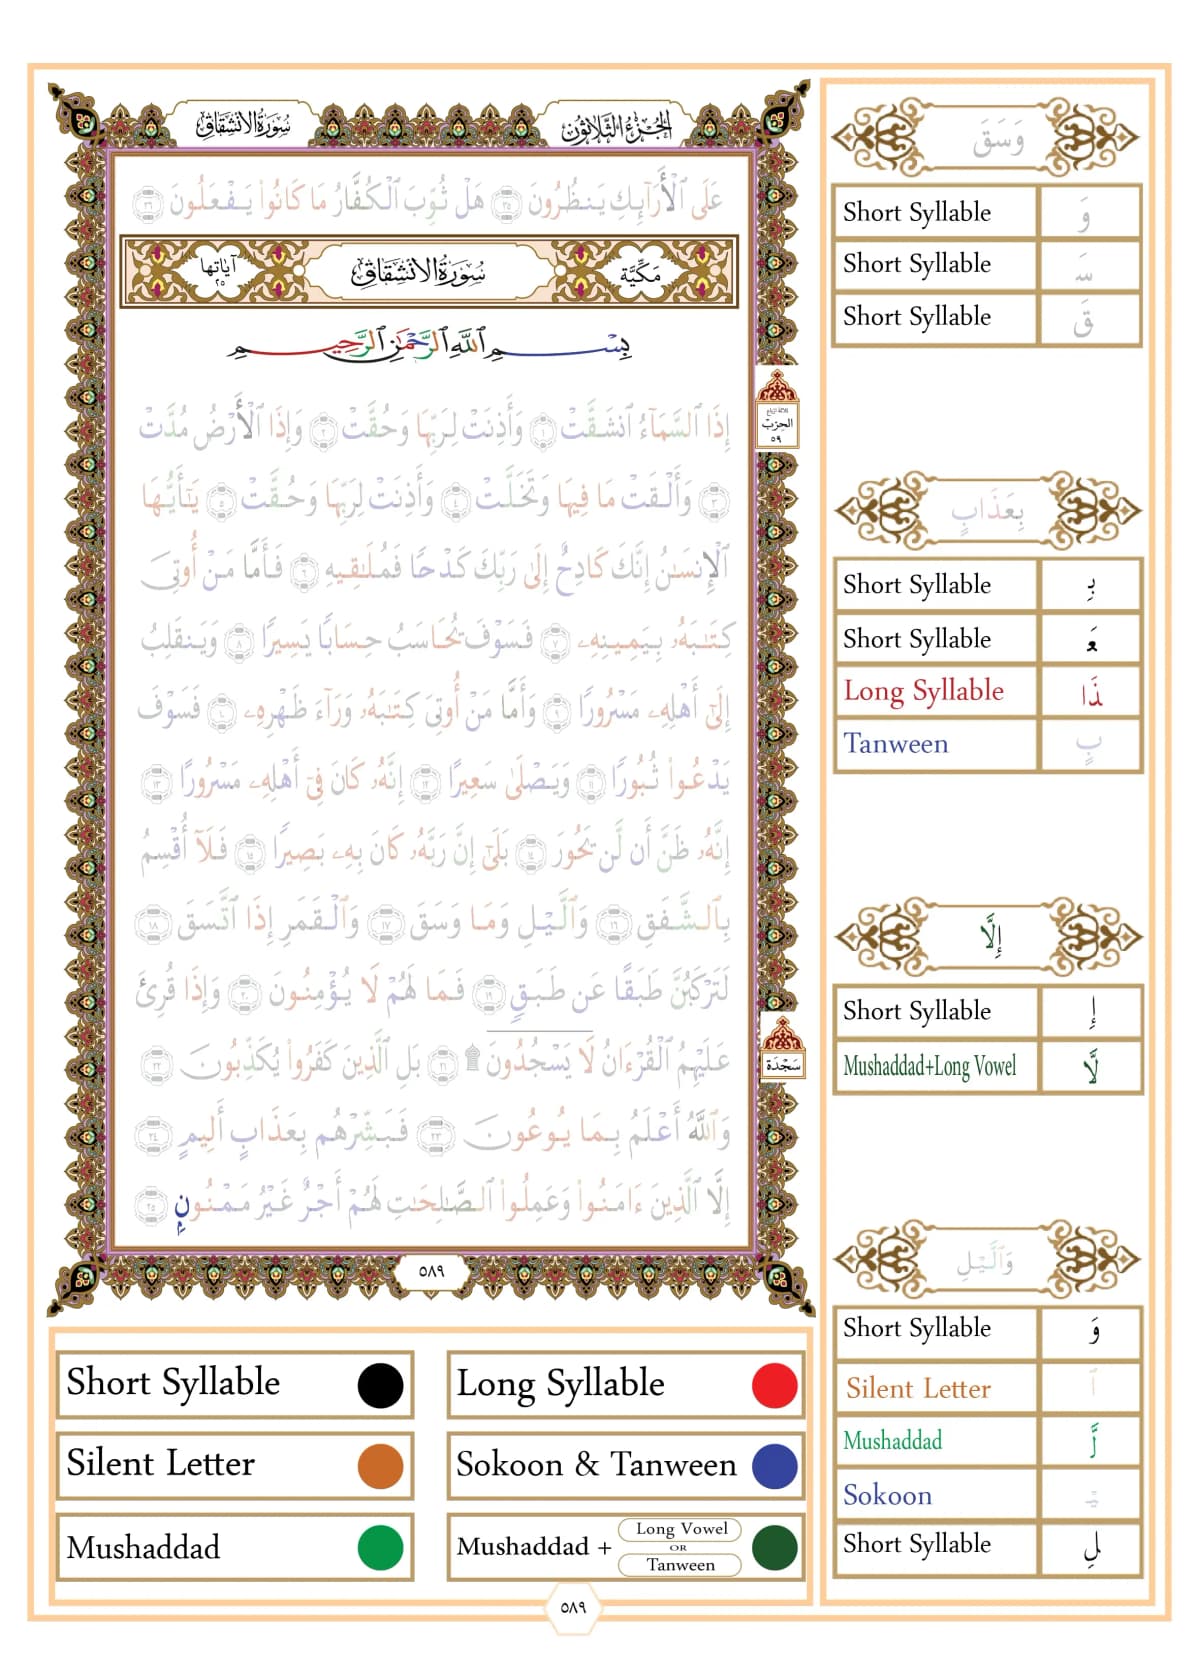 سُورَةُ الانشِقَاقِ
الجُزءُ الثَّلاثُونَ
عَلَى ٱلْأَرَآئِكِ يَنظُرُونَ ٣٥ هَلْ ثُوِّبَ ٱلْكُفَّارُ مَا كَانُوا۟ يَفْعَلُونَ ٣٦
مَكِّيَّة
سُورَةُ الانشِقَاقِ
آيَاتها ٢٥
بِسْمِ ٱللَّهِ ٱلرَّحْمَٰنِ ٱلرَّحِيمِ
إِذَا ٱلسَّمَآءُ ٱنشَقَّتْ ١ وَأَذِنَتْ لِرَبِّهَا وَحُقَّتْ ٢ وَإِذَا ٱلْأَرْضُ مُدَّتْ
٣ وَأَلْقَتْ مَا فِيهَا وَتَخَلَّتْ ٤ وَأَذِنَتْ لِرَبِّهَا وَحُقَّتْ ٥ يَٰٓأَيُّهَا
ٱلْإِنسَٰنُ إِنَّكَ كَادِحٌ إِلَىٰ رَبِّكَ كَدْحًا فَمُلَٰقِيهِ ٦ فَأَمَّا مَنْ أُوتِىَ
كِتَٰبَهُۥ بِيَمِينِهِۦ ٧ فَسَوْفَ يُحَاسَبُ حِسَابًا يَسِيرًا ٨ وَيَنقَلِبُ
إِلَىٰٓ أَهْلِهِۦ مَسْرُورًا ٩ وَأَمَّا مَنْ أُوتِىَ كِتَٰبَهُۥ وَرَآءَ ظَهْرِهِۦ ١٠ فَسَوْفَ
يَدْعُوا۟ ثُبُورًا ١١ وَيَصْلَىٰ سَعِيرًا ١٢ إِنَّهُۥ كَانَ فِىٓ أَهْلِهِۦ مَسْرُورًا ١٣
إِنَّهُۥ ظَنَّ أَن لَّن يَحُورَ ١٤ بَلَىٰٓ إِنَّ رَبَّهُۥ كَانَ بِهِۦ بَصِيرًا ١٥ فَلَآ أُقْسِمُ
بِٱلشَّفَقِ ١٦ وَٱلَّيْلِ وَمَا وَسَقَ ١٧ وَٱلْقَمَرِ إِذَا ٱتَّسَقَ ١٨
لَتَرْكَبُنَّ طَبَقًا عَن طَبَقٍ ١٩ فَمَا لَهُمْ لَا يُؤْمِنُونَ ٢٠ وَإِذَا قُرِئَ
عَلَيْهِمُ ٱلْقُرْءَانُ لَا يَسْجُدُونَ ۩ ٢١ بَلِ ٱلَّذِينَ كَفَرُوا۟ يُكَذِّبُونَ ٢٢
وَٱللَّهُ أَعْلَمُ بِمَا يُوعُونَ ٢٣ فَبَشِّرْهُم بِعَذَابٍ أَلِيمٍ ٢٤
إِلَّا ٱلَّذِينَ ءَامَنُوا۟ وَعَمِلُوا۟ ٱلصَّٰلِحَٰتِ لَهُمْ أَجْرٌ غَيْرُ مَمْنُونٍۭ ٢٥
٥٨٩
الحِزبْ
٥٩
سَجْدَة
وَسَقَ
Short Syllable وَ
Short Syllable سَ
Short Syllable قَ
بِعَذَابٍ
Short Syllable بِ
Short Syllable عَ
Long Syllable ذَا
Tanween بٍ
إِلَّا
Short Syllable إِ
Mushaddad+Long Vowel لَّا
وَٱلَّيْلِ
Short Syllable وَ
Silent Letter ٱ
Mushaddad لَّ
Sokoon يْ
Short Syllable لِ
Short Syllable
Long Syllable
Silent Letter
Sokoon & Tanween
Mushaddad
Mushaddad + Long Vowel OR Tanween
٥٨٩